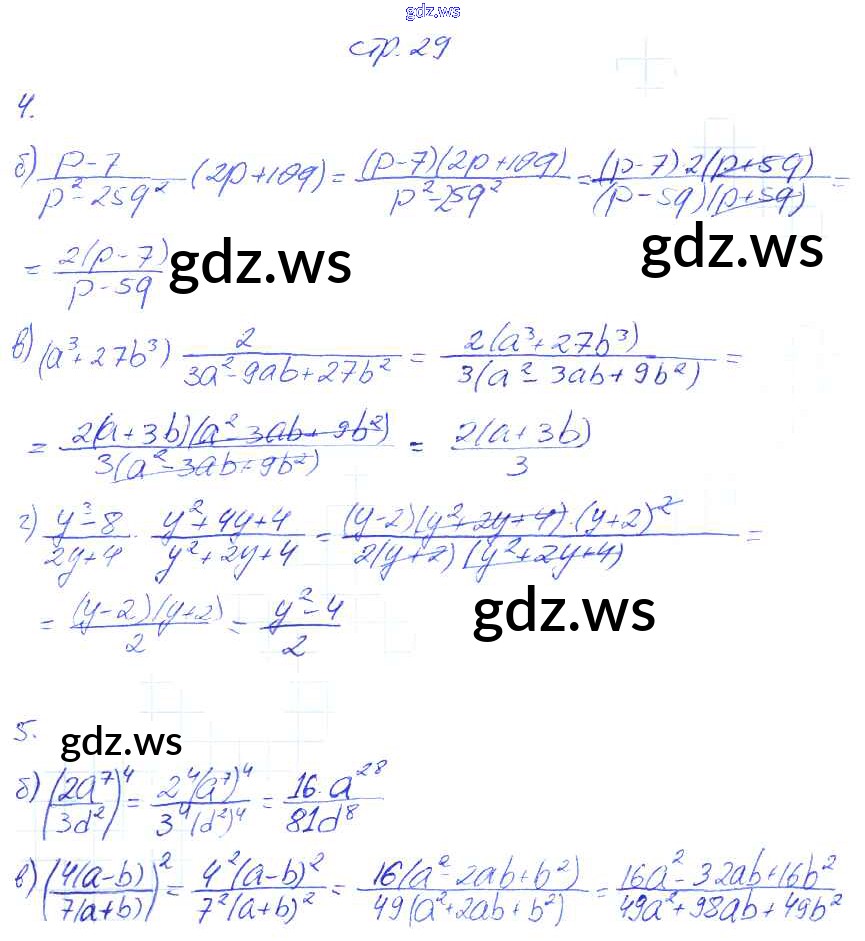 gdz.ws
стр. 29
4.
б) (p-7)/(p²-25q²) · (2p+10q) = ((p-7)(2p+10q))/(p²-25q²) = ((p-7)·2(p+5q))/((p-5q)(p+5q)) =
= (2(p-7))/(p-5q)
gdz.ws
gdz.ws
в) (a³+27b³) · 2/(3a²-9ab+27b²) = (2(a³+27b³))/(3(a²-3ab+9b²)) =
= (2(a+3b)(a²-3ab+9b²))/(3(a²-3ab+9b²)) = (2(a+3b))/3
г) (y³-8)/(2y+4) · (y²+4y+4)/(y²+2y+4) = ((y-2)(y²+2y+4)·(y+2)²)/(2(y+2)(y²+2y+4)) =
= ((y-2)(y+2))/2 = (y²-4)/2
gdz.ws
5.
gdz.ws
б) (2a⁷/3d²)⁴ = (2⁴(a⁷)⁴)/(3⁴(d²)⁴) = (16·a²⁸)/(81d⁸)
в) (4(a-b)/7(a+b))² = (4²(a-b)²)/(7²(a+b)²) = (16(a²-2ab+b²))/(49(a²+2ab+b²)) = (16a²-32ab+16b²)/(49a²+98ab+49b²)